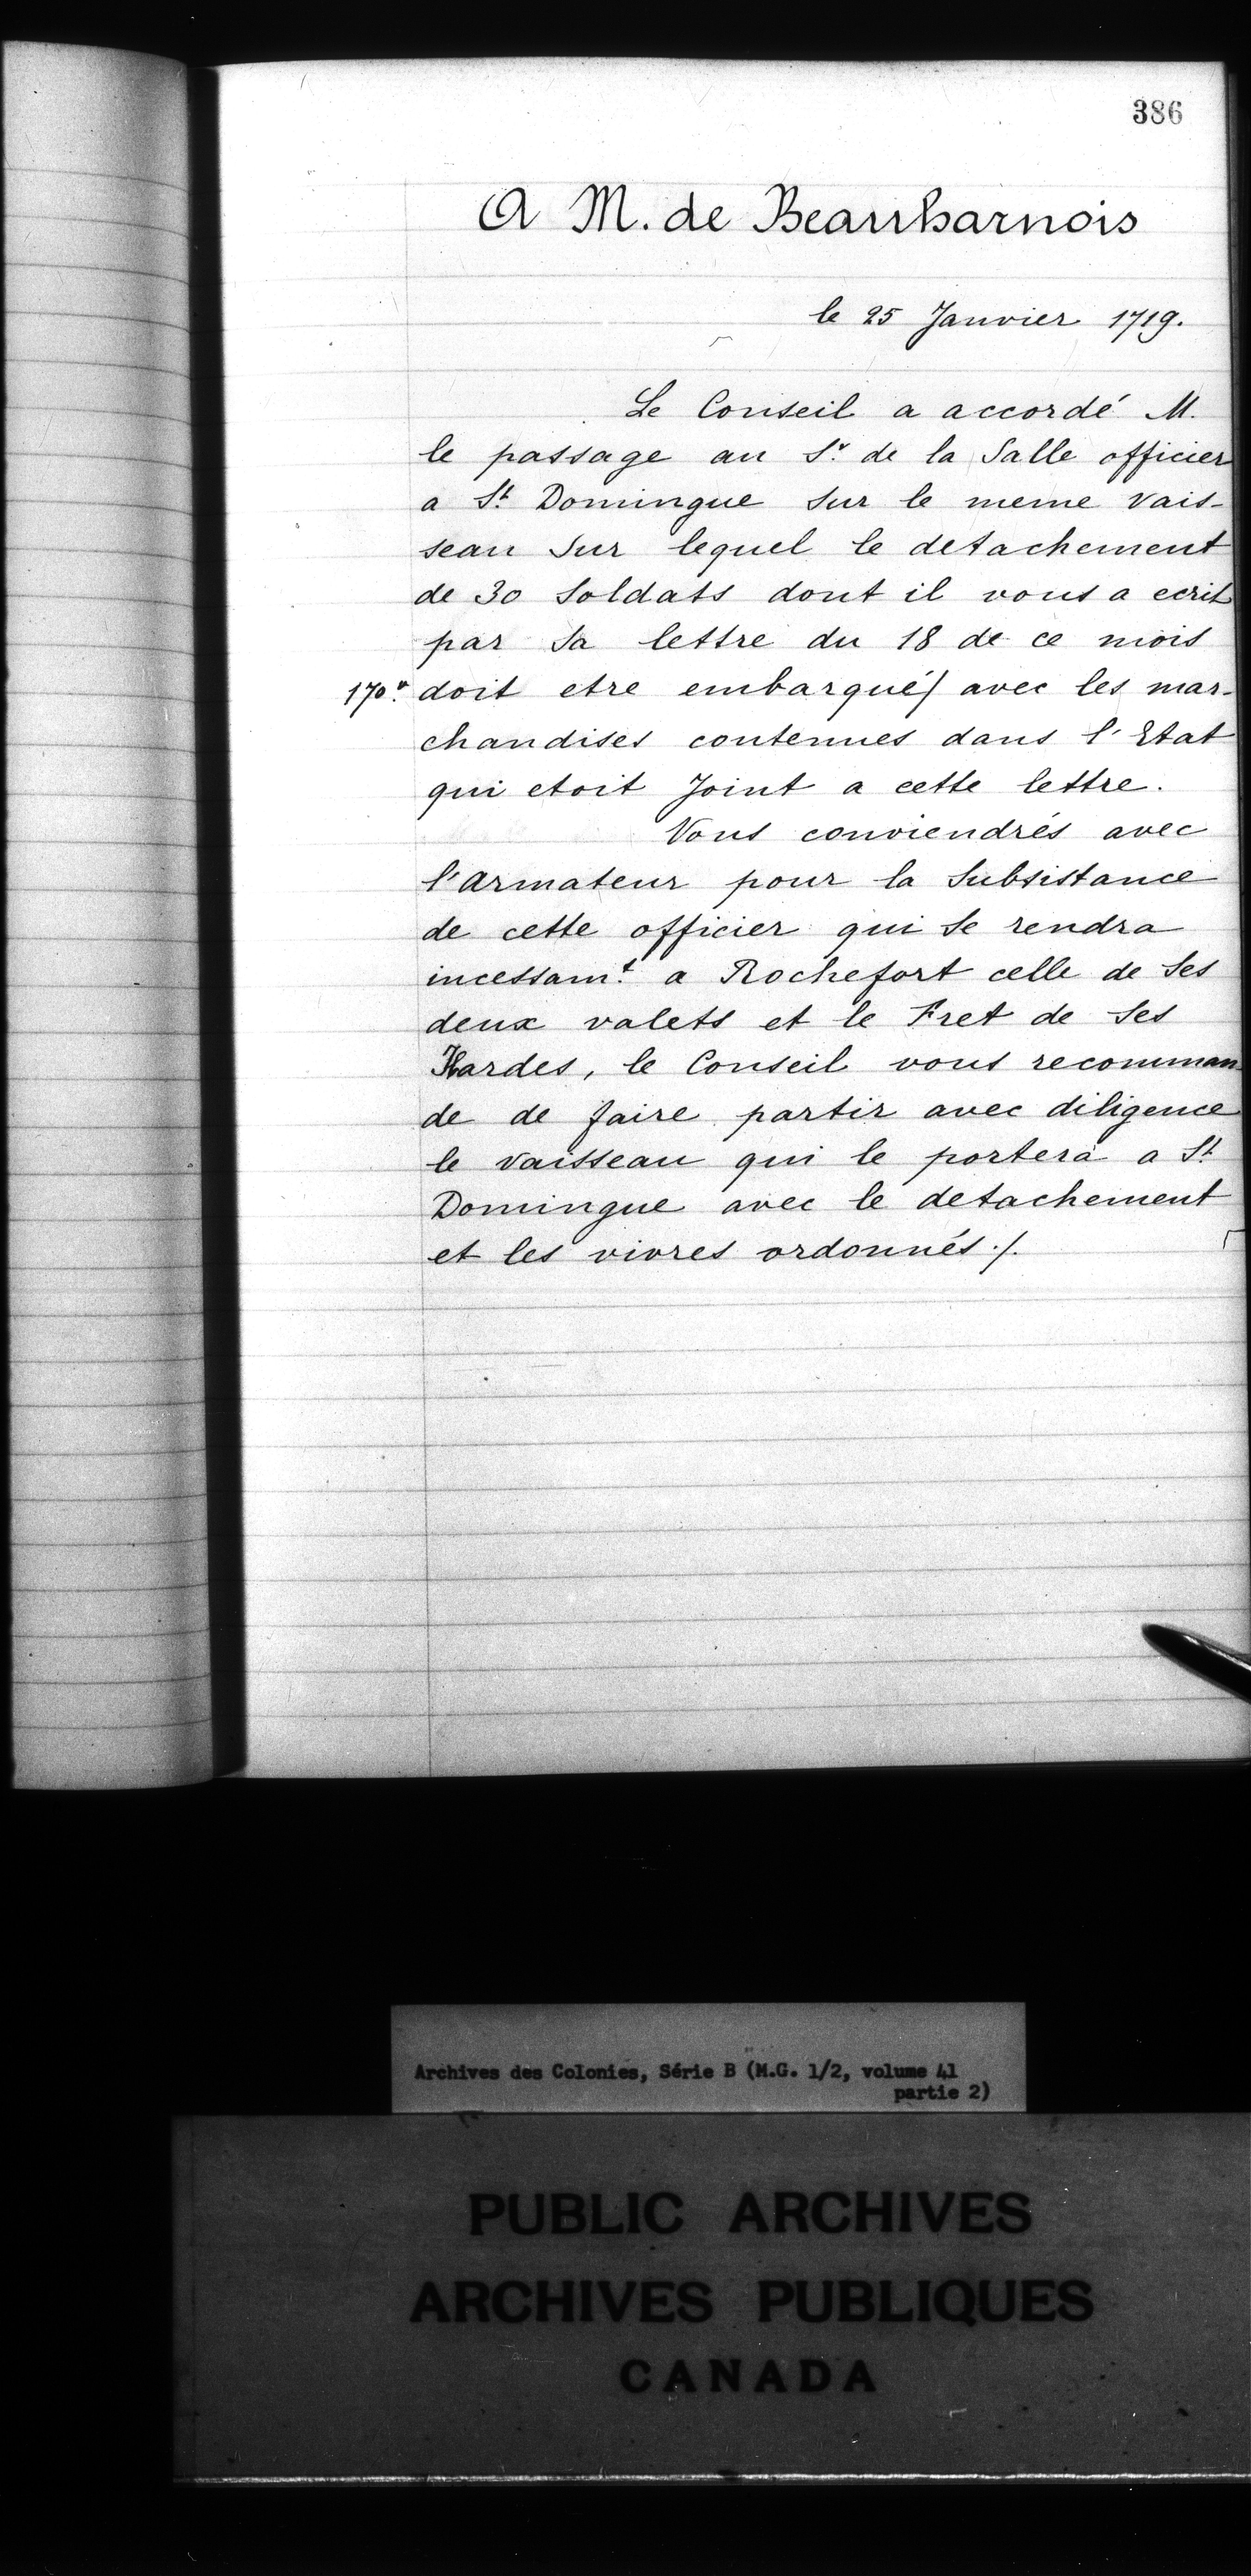 386
A M. de Beauharnois
le 25 Janvier 1719.
Le Conseil a accordé M.
le passage au Sr. de la Salle officier
a St. Domingue sur le meme vais-
seau sur lequel le detachement
de 30 soldats dont il vous a ecrit
par sa lettre du 18 de ce mois
170.v doit etre embarqué/ avec les mar-
chandises contenues dans l'Etat
qui etoit Joint a cette lettre.
Vous conviendrés avec
l'armateur pour la subsistance
de cette officier qui se rendra
incessamt. a Rochefort celle de ses
deux valets et le Fret de ses
Hardes, le Conseil vous recomman-
de de faire partir avec diligence
le vaisseau qui le portera a St.
Domingue avec le detachement
et les vivres ordonnés ./.
Archives des Colonies, Série B (M.G. 1/2, volume 41
partie 2)
PUBLIC ARCHIVES
ARCHIVES PUBLIQUES
CANADA